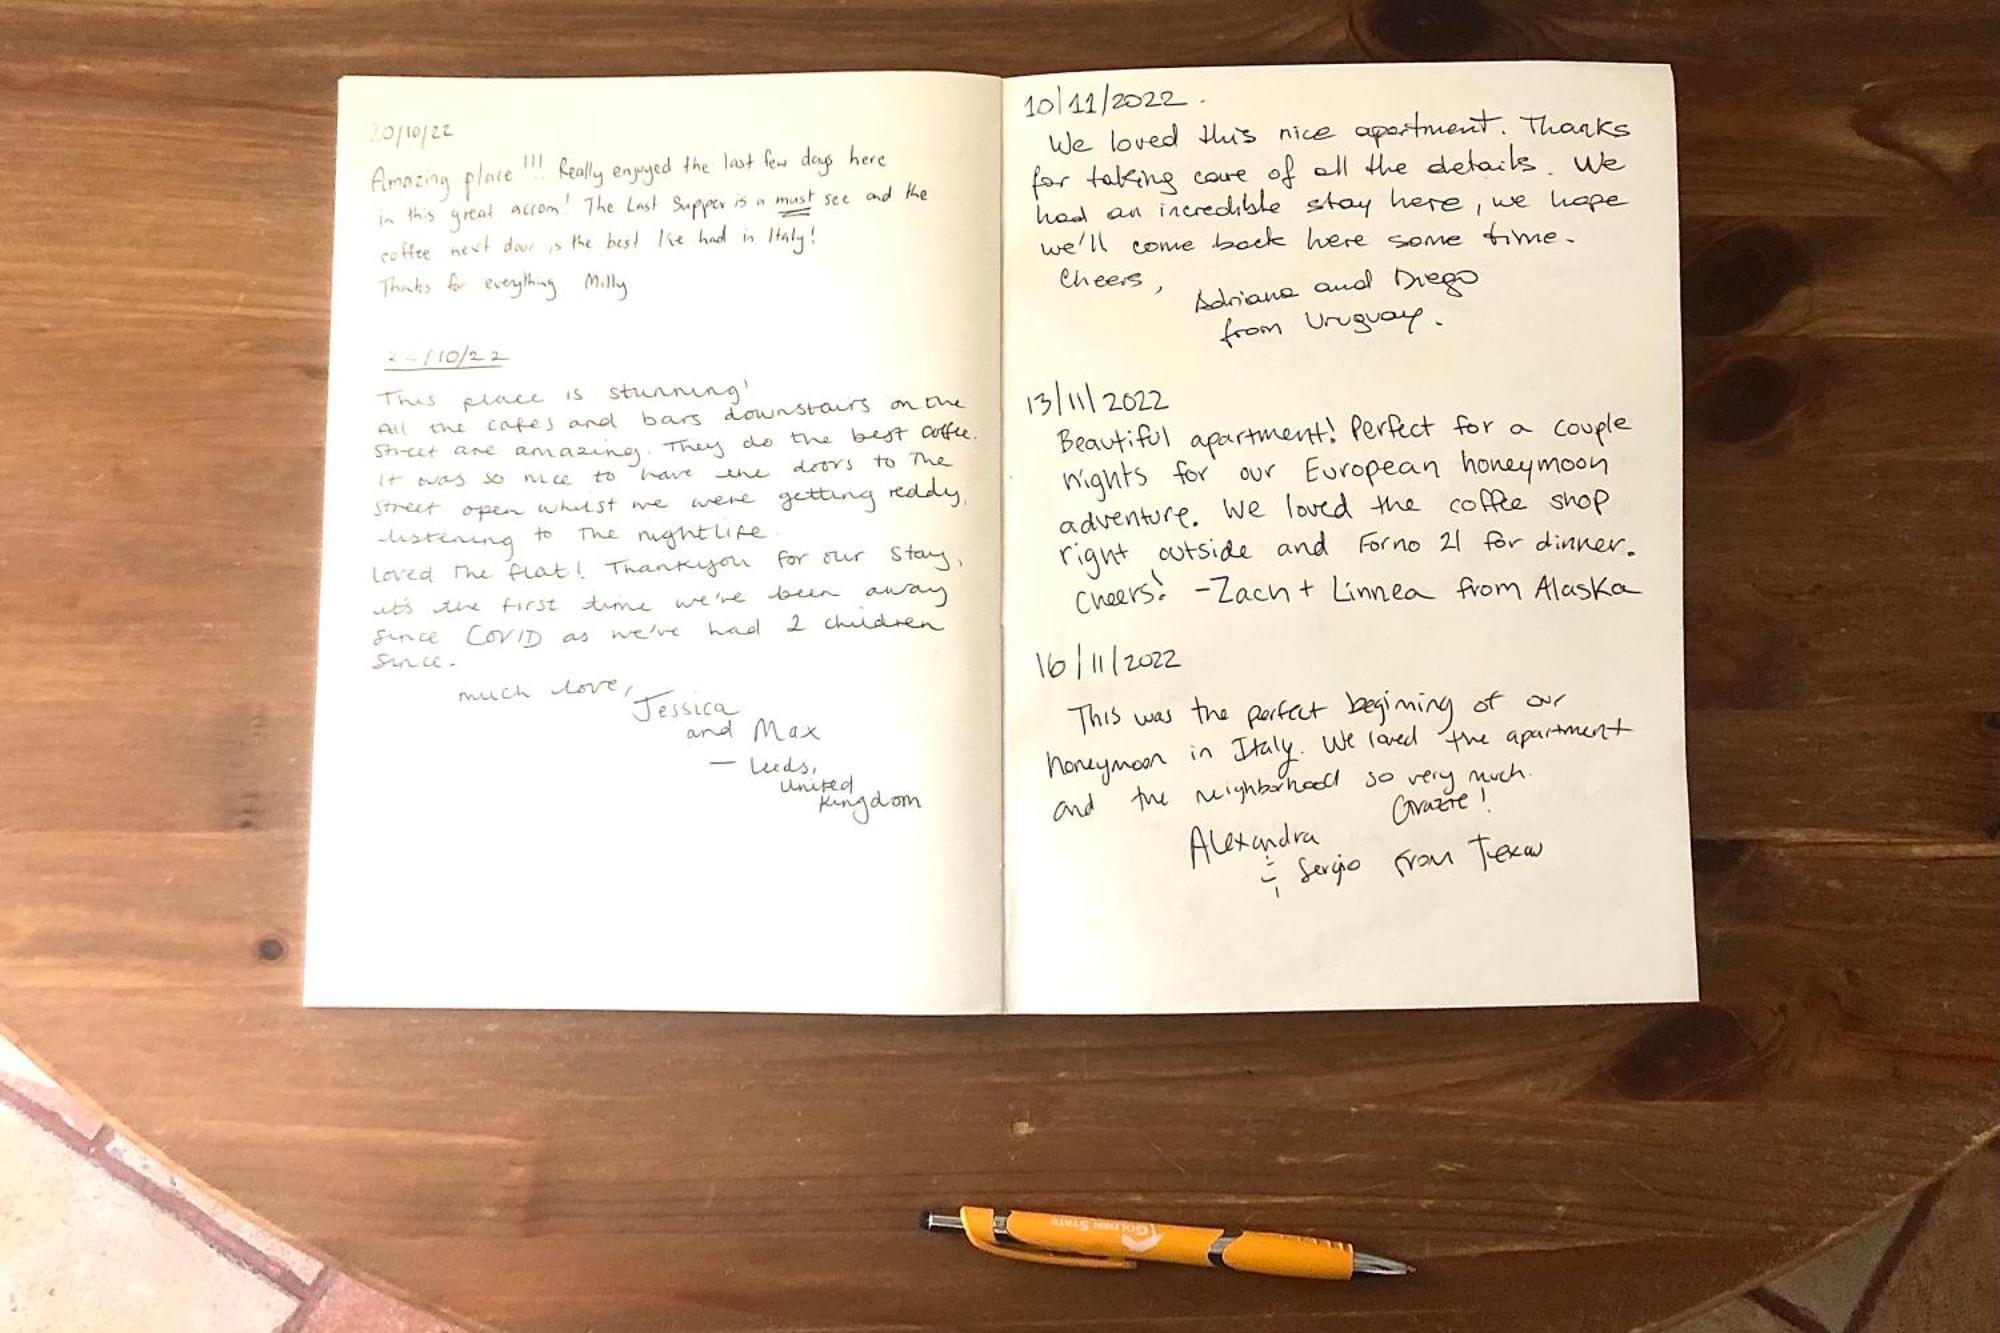 20/10/22
Amazing place!!! Really enjoyed the last few days here
in this great accom! The Last Supper is a must see and the
coffee next door is the best I've had in Italy!
Thanks for everything Milly
/10/22
This place is stunning!
All the cafes and bars downstairs on the
street are amazing. They do the best coffee.
It was so nice to have the doors to the
street open whilst we were getting ready,
listening to the nightlife.
Loved the flat! Thankyou for our stay,
it's the first time we've been away
since COVID as we've had 2 children
since.
much love,
Jessica
and Max
— Leeds,
United
Kingdom
10/11/2022.
We loved this nice apartment. Thanks
for taking care of all the details. We
had an incredible stay here, we hope
we'll come back here some time.
Cheers,
Adriana and Diego
from Uruguay.
13/11/2022
Beautiful apartment! Perfect for a couple
nights for our European honeymoon
adventure. We loved the coffee shop
right outside and Forno 21 for dinner.
Cheers! -Zach + Linnea from Alaska
16/11/2022
This was the perfect beginning of our
honeymoon in Italy. We loved the apartment
and the neighborhood so very much.
Grazie!
Alexandra
& Sergio from Texas
GOLDEN STATE